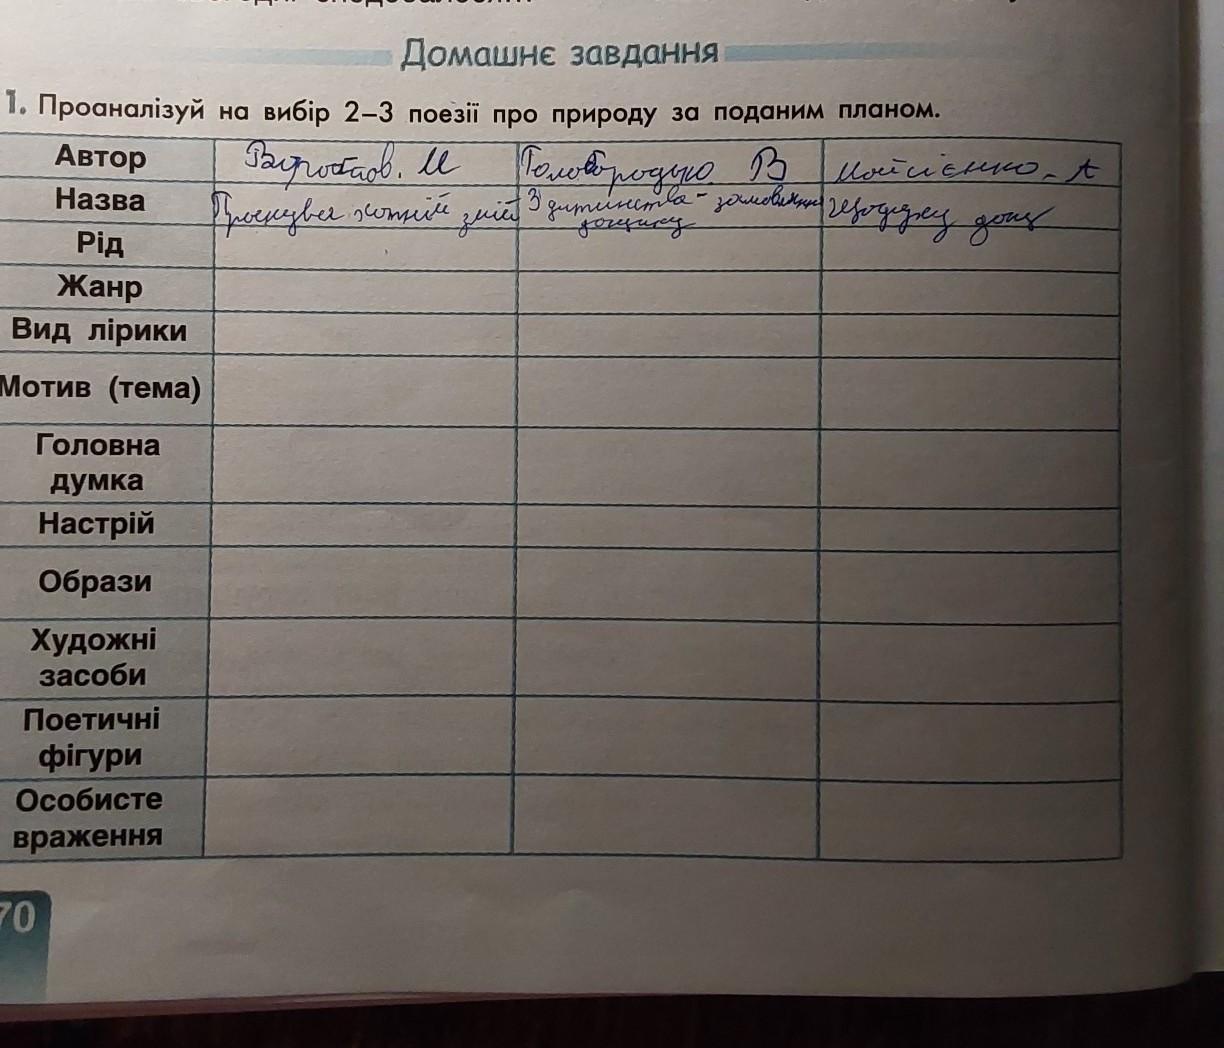 Домашнє завдання
1. Проаналізуй на вибір 2–3 поезії про природу за поданим планом.
Автор М Голобородько В Мойсієнко. А
Назва З дитинства- дощ
Рід
Жанр
Вид лірики
Мотив (тема)
Головна
думка
Настрій
Образи
Художні
засоби
Поетичні
фігури
Особисте
враження
70